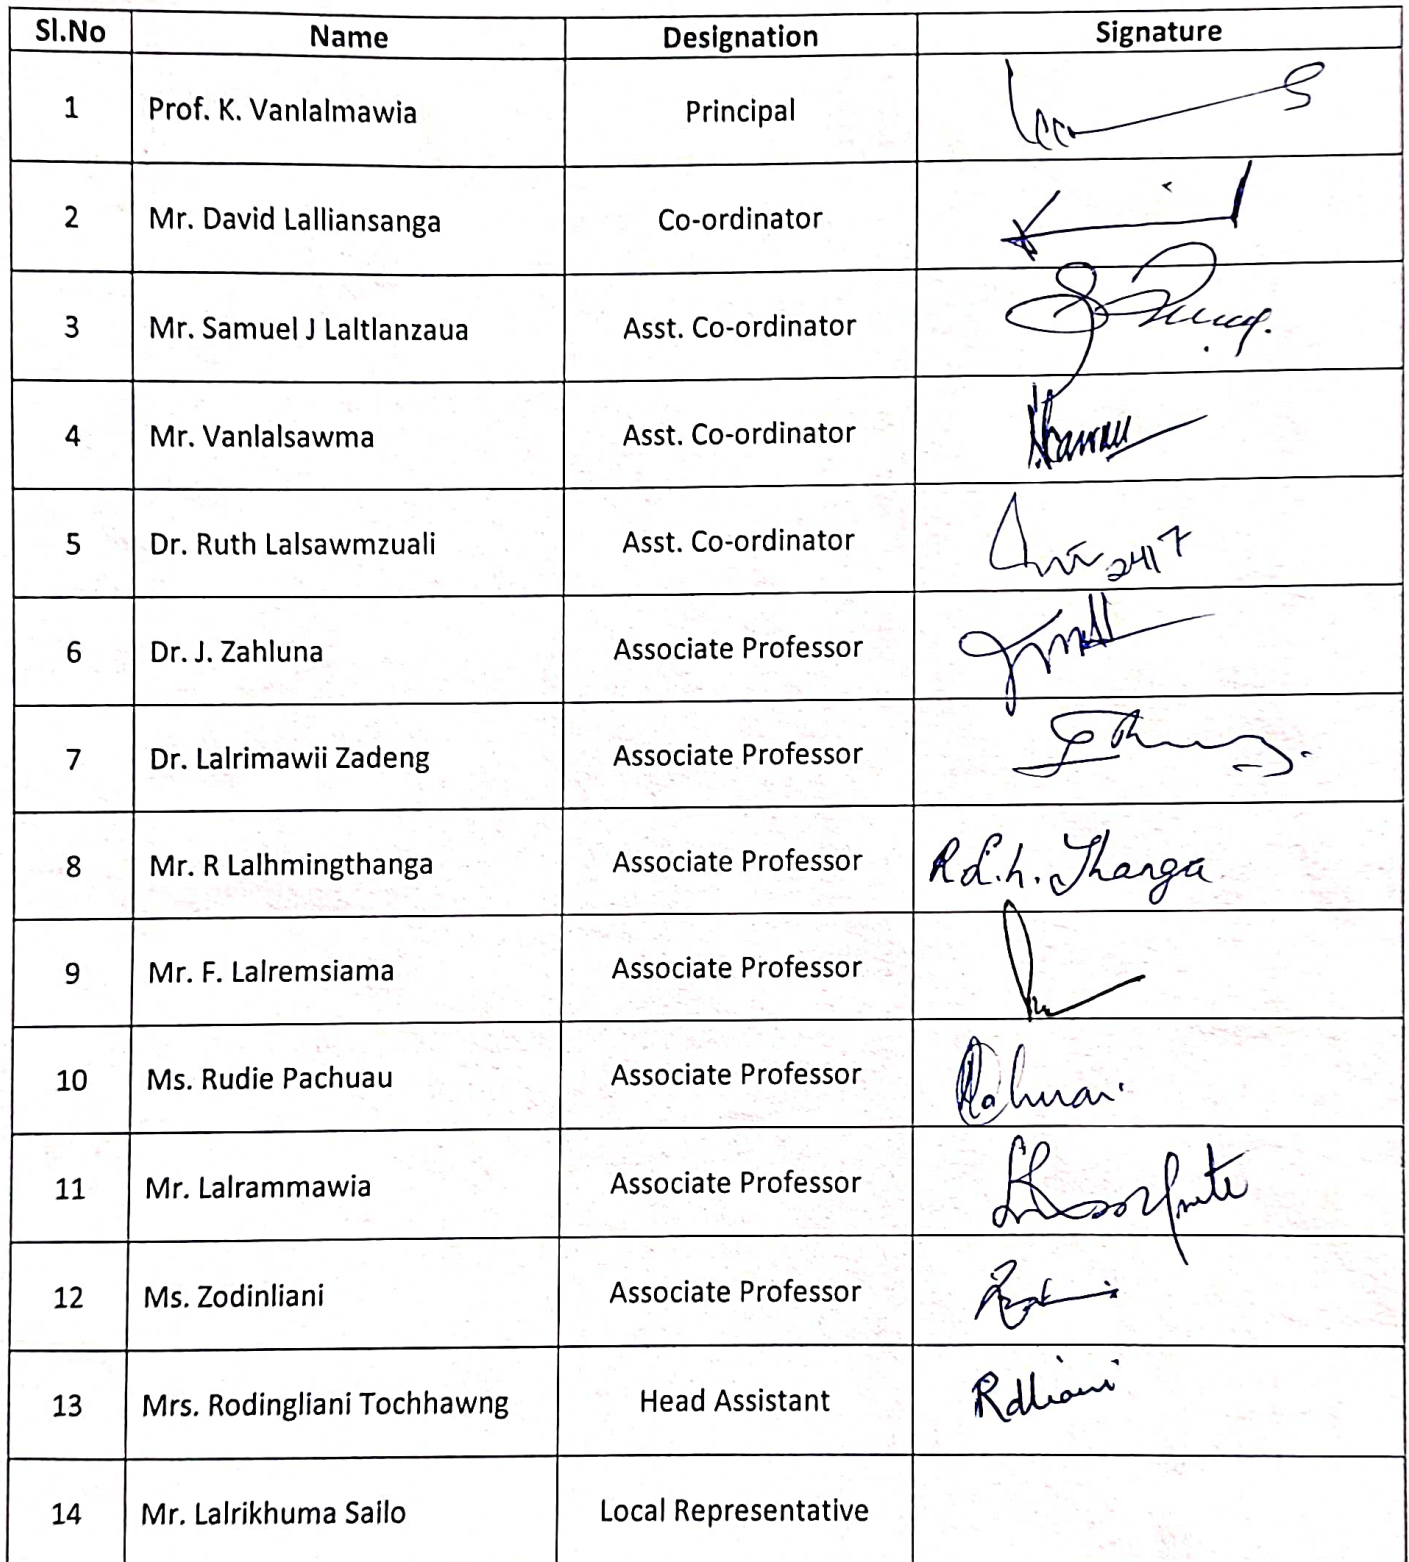 Sl.No Name Designation Signature
1 Prof. K. Vanlalmawia Principal
2 Mr. David Lalliansanga Co-ordinator
3 Mr. Samuel J Laltlanzaua Asst. Co-ordinator
4 Mr. Vanlalsawma Asst. Co-ordinator
5 Dr. Ruth Lalsawmzuali Asst. Co-ordinator 24/7
6 Dr. J. Zahluna Associate Professor
7 Dr. Lalrimawii Zadeng Associate Professor
8 Mr. R Lalhmingthanga Associate Professor R.L.h. Thanga
9 Mr. F. Lalremsiama Associate Professor
10 Ms. Rudie Pachuau Associate Professor
11 Mr. Lalrammawia Associate Professor
12 Ms. Zodinliani Associate Professor
13 Mrs. Rodingliani Tochhawng Head Assistant Rdliani
14 Mr. Lalrikhuma Sailo Local Representative